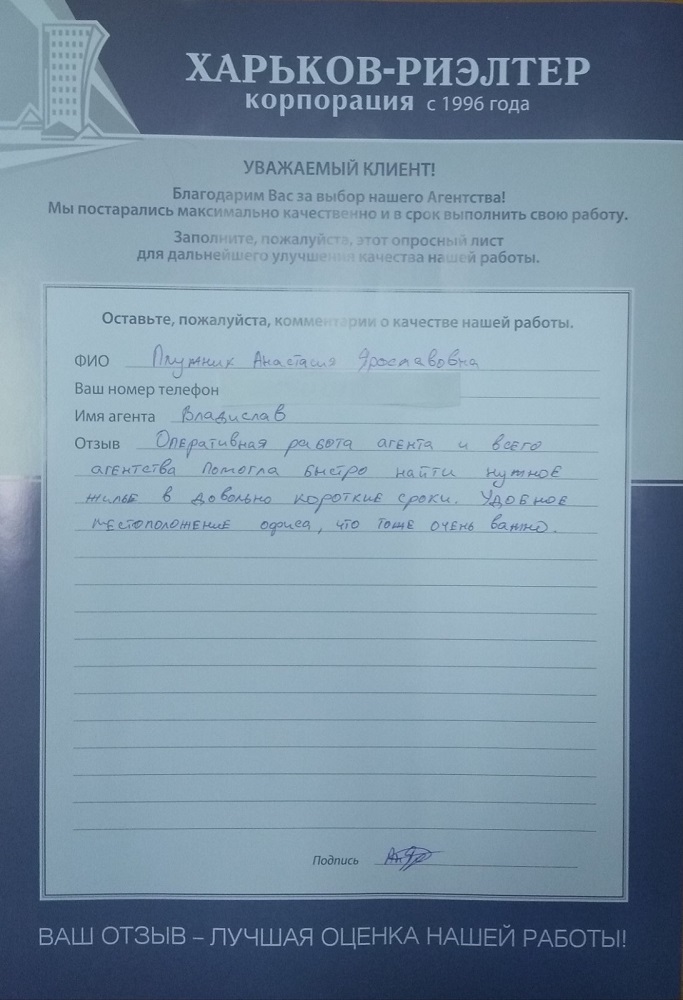 ХАРЬКОВ-РИЭЛТЕР
корпорация с 1996 года
УВАЖАЕМЫЙ КЛИЕНТ!
Благодарим Вас за выбор нашего Агентства!
Мы постарались максимально качественно и в срок выполнить свою работу.
Заполните, пожалуйста, этот опросный лист
для дальнейшего улучшения качества нашей работы.
Оставьте, пожалуйста, комментарии о качестве нашей работы.
ФИО Плужник Анастасия Ярославовна
Ваш номер телефон
Имя агента Владислав
Отзыв Оперативная работа агента и всего
агентства помогла быстро найти нужное
жилье в довольно короткие сроки. Удобное
местоположение офиса, что тоже очень важно.
Подпись
ВАШ ОТЗЫВ – ЛУЧШАЯ ОЦЕНКА НАШЕЙ РАБОТЫ!